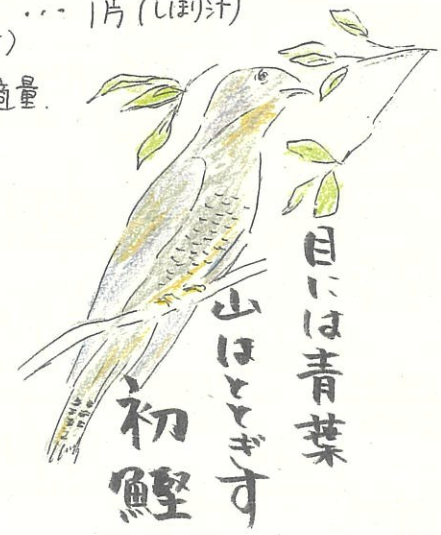 … 1片(しぼり汁)
適量.
目には青葉
山ほととぎす
初鰹